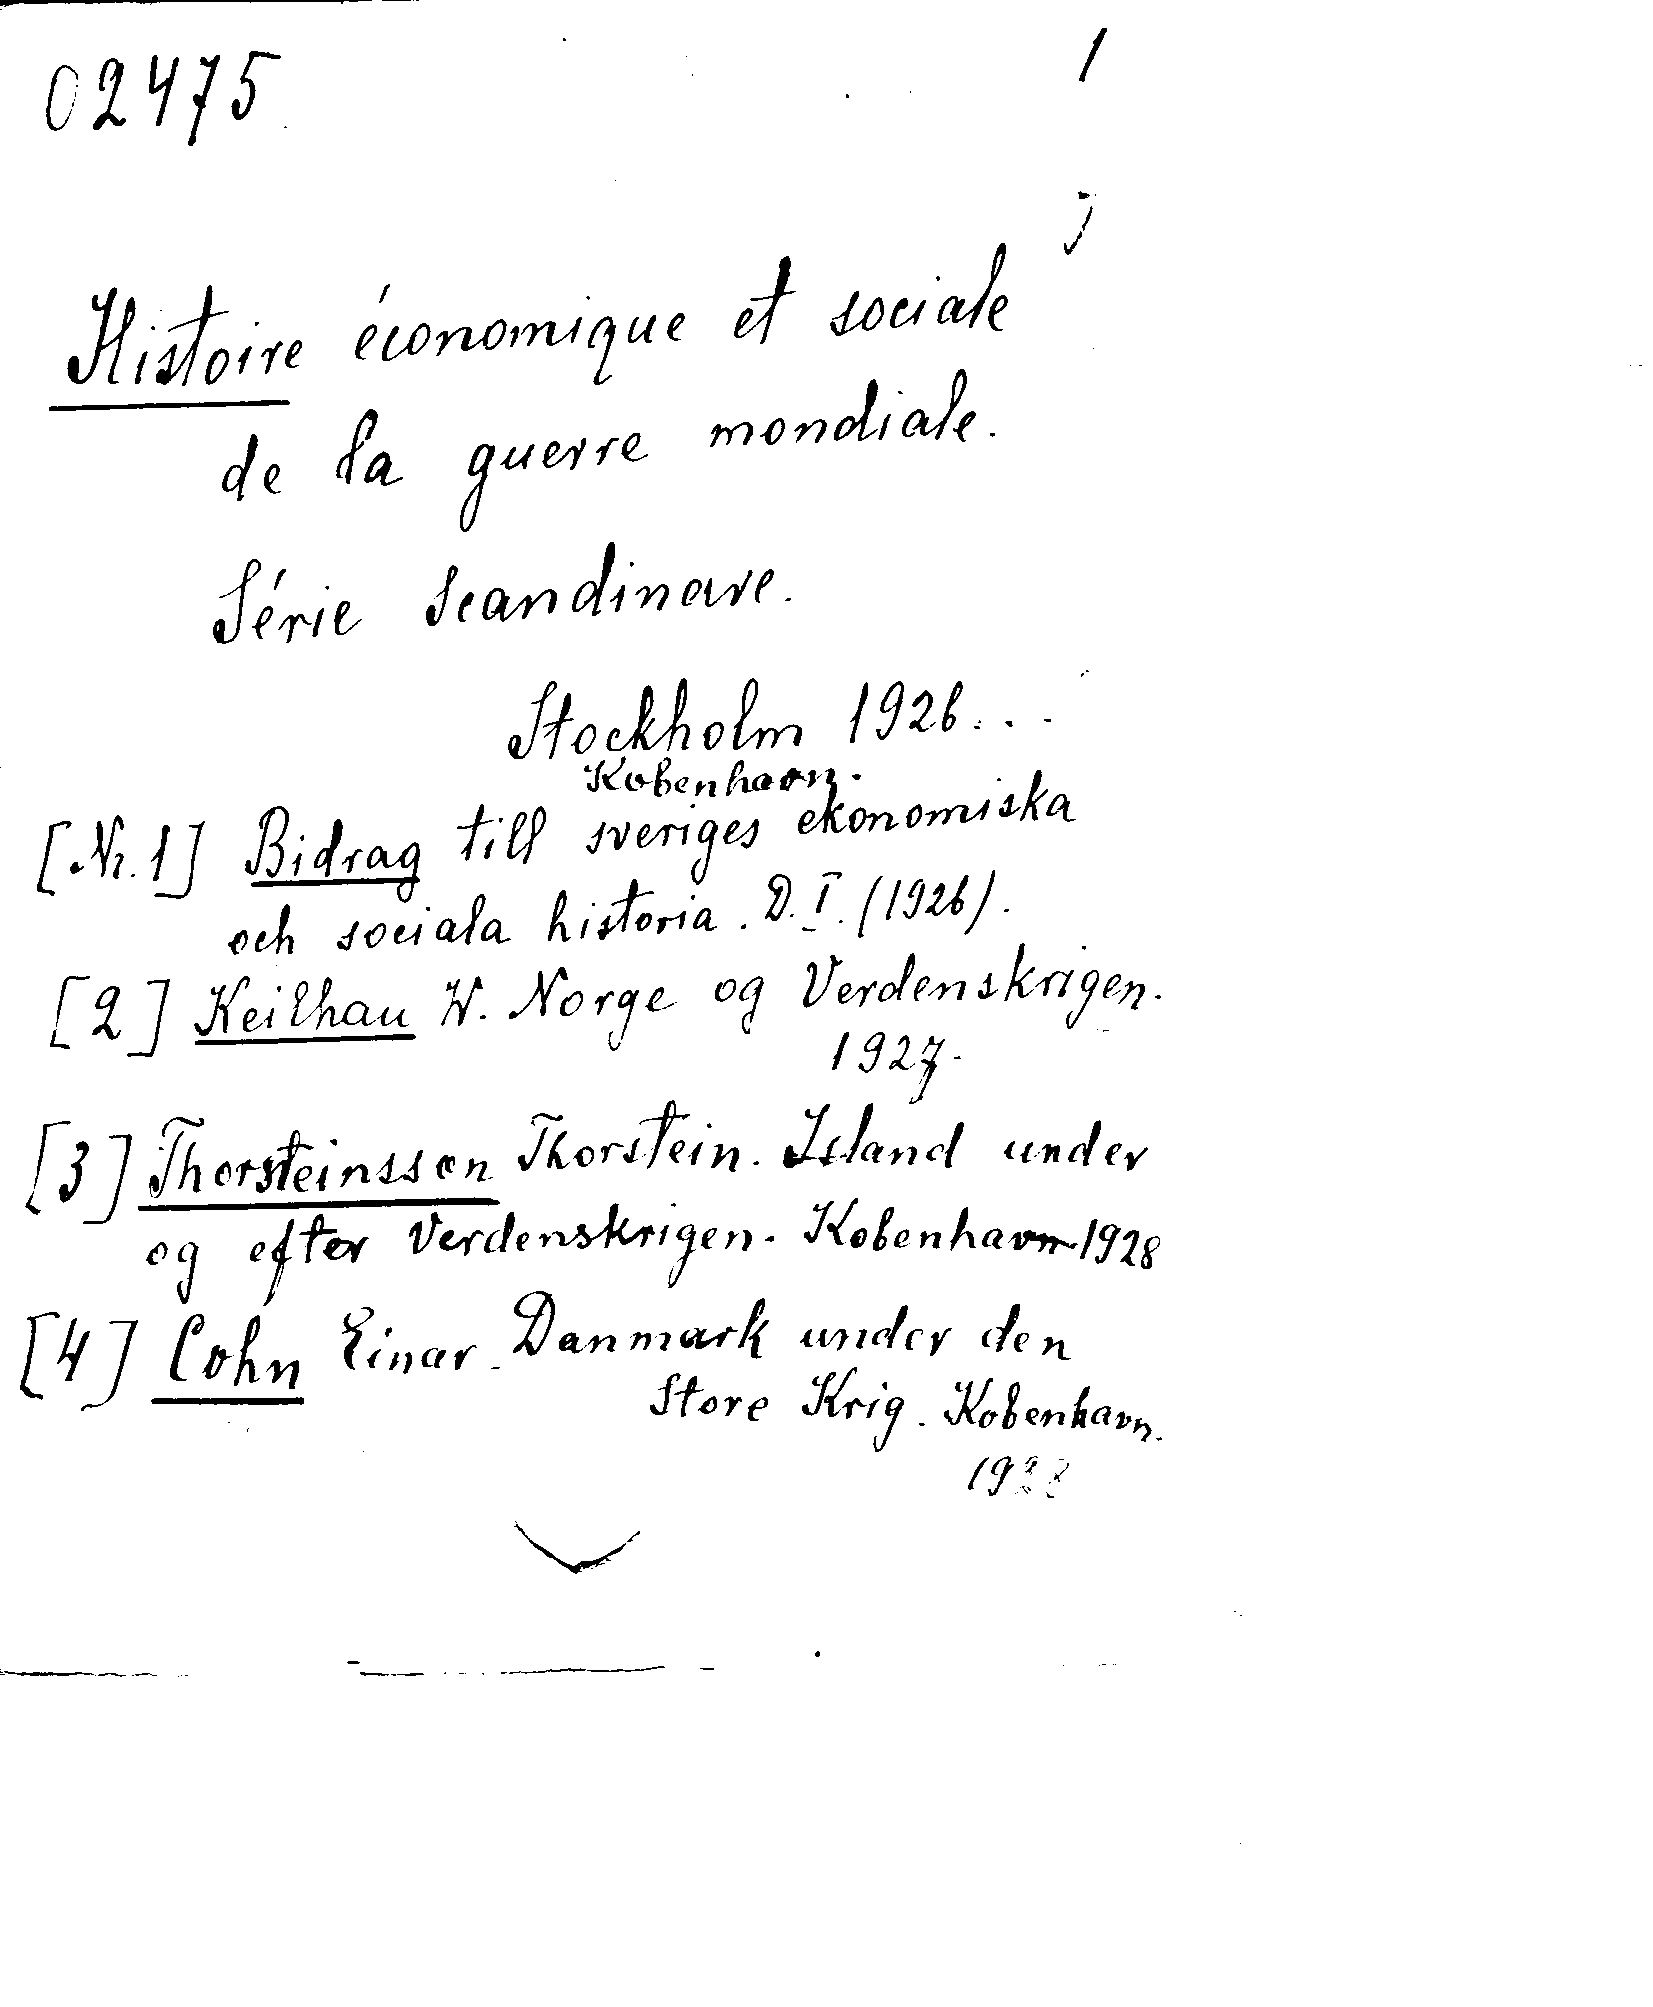 02475
1
Histoire économique et sociale
de la guerre mondiale.
Série scandinave.
Stockholm 1926...
Kobenhavn.
[Nr. 1] Bidrag till sveriges ekonomiska
och sociala historia. D. I. (1926).
[2] Keilhau W. Norge og Verdenskrigen.
1927.
[3] Thorsteinsson Thorstein. Island under
og efter Verdenskrigen. Kobenhavn 1928
[4] Cohn Einar. Danmark under den
Store Krig. Kobenhavn.
1928